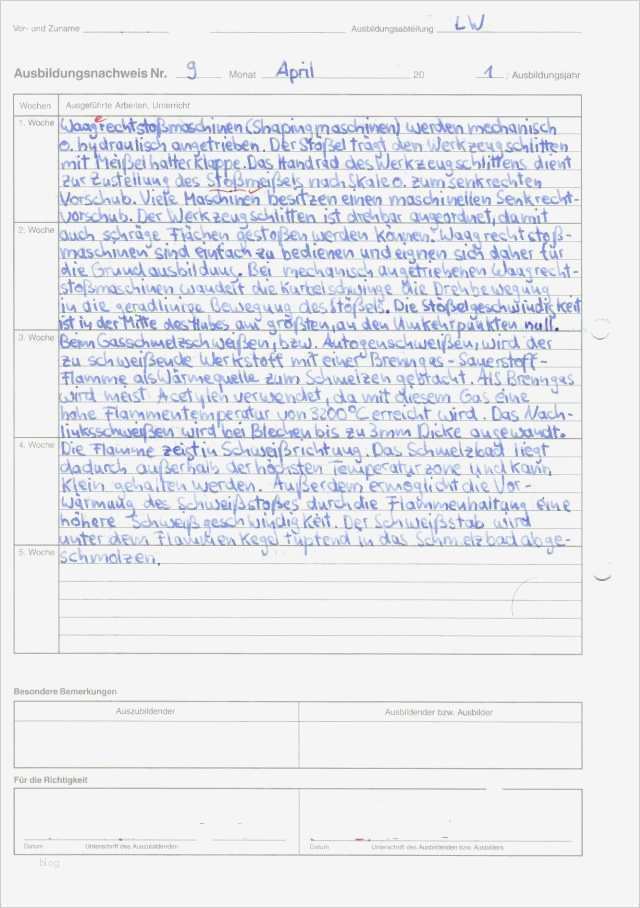 Vor- und Zuname
Ausbildungsabteilung LW
Ausbildungsnachweis Nr. 9 Monat April 20 1. Ausbildungsjahr
Wochen Ausgeführte Arbeiten, Unterricht
1. Woche Waagerechtstoßmaschinen (Shapingmaschinen) werden mechanisch
o. hydraulisch angetrieben. Der Stößel trägt den Werkzeugschlitten
mit Meißelhalterklappe. Das Handrad des Werkzeugschlittens dient
zur Zustellung des Stoßmeißels nach Skale o. zum senkrechten
Vorschub. Viele Maschinen besitzen einen maschinellen Senkrecht-
vorschub. Der Werkzeugschlitten ist drehbar angeordnet, damit
2. Woche auch schräge Flächen gestoßen werden können. Waagrechtstoß-
maschinen sind einfach zu bedienen und eignen sich daher für
die Grundausbildung. Bei mechanisch angetriebenen Waagrecht-
stoßmaschinen wandelt die Kurbelschwinge die Drehbewegung
in die geradlinige Bewegung des Stößels. Die Stößelgeschwindigkeit
ist in der Mitte des Hubes am größten, an den Umkehrpunkten null.
3. Woche Beim Gasschmelzschweißen, bzw. Autogenschweißen, wird der
zu schweißende Werkstoff mit einer Brenngas-Sauerstoff-
Flamme als Wärmequelle zum Schmelzen gebracht. Als Brenngas
wird meist Acetylen verwendet, da mit diesem Gas eine
hohe Flammentemperatur von 3200°C erreicht wird. Das Nach-
linksschweißen wird bei Blechen bis zu 3mm Dicke angewandt.
4. Woche Die Flamme zeigt in Schweißrichtung. Das Schmelzbad liegt
dadurch außerhalb der höchsten Temperaturzone und kann
klein gehalten werden. Außerdem ermöglicht die Vor-
wärmung des Schweißstoßes durch die Flammenhaltung eine
höhere Schweißgeschwindigkeit. Der Schweißstab wird
unter dem Flammenkegel tupfend in das Schmelzbad abge-
5. Woche schmolzen.
Besondere Bemerkungen
Auszubildender Ausbildender bzw. Ausbilder
Für die Richtigkeit
Datum Unterschrift des Auszubildenden Datum Unterschrift des Ausbildenden bzw. Ausbilders
blog